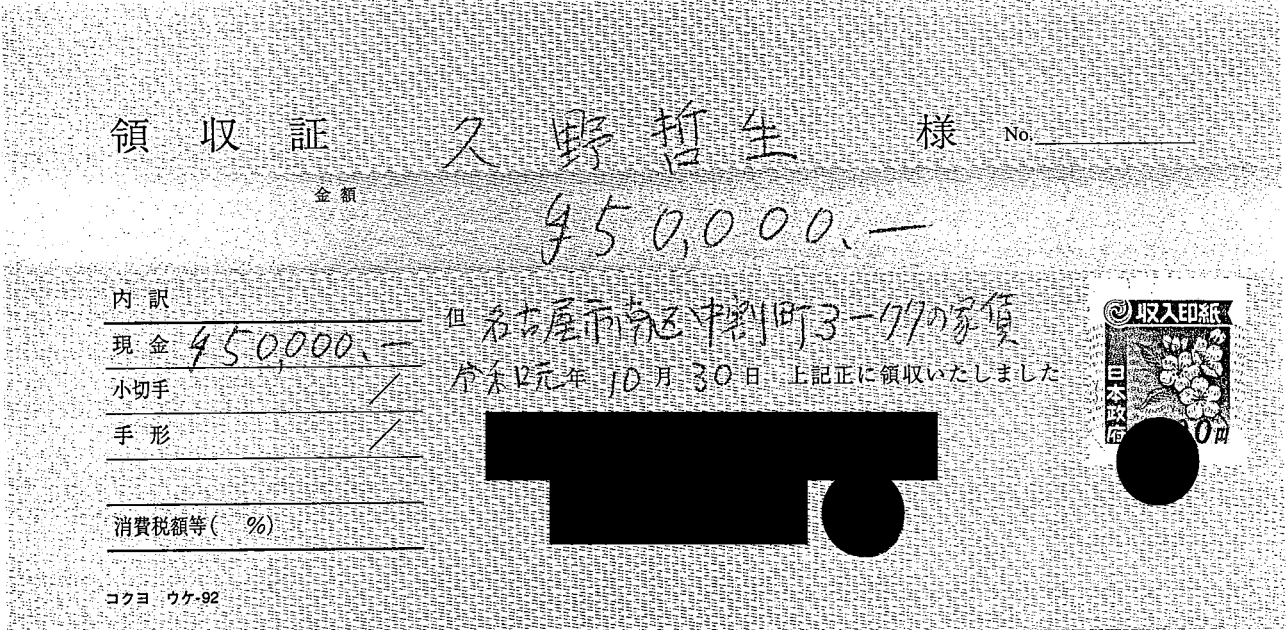 領収証 久野哲生 様 No.
金額
¥50,000.-
内訳
現金 ¥50,000.-
小切手 /
手形 /
消費税額等( %)
但 名古屋市南区中割町3-77の家賃
令和元年10月30日 上記正に領収いたしました
収入印紙
日本政府
00円
コクヨ ウケ-92